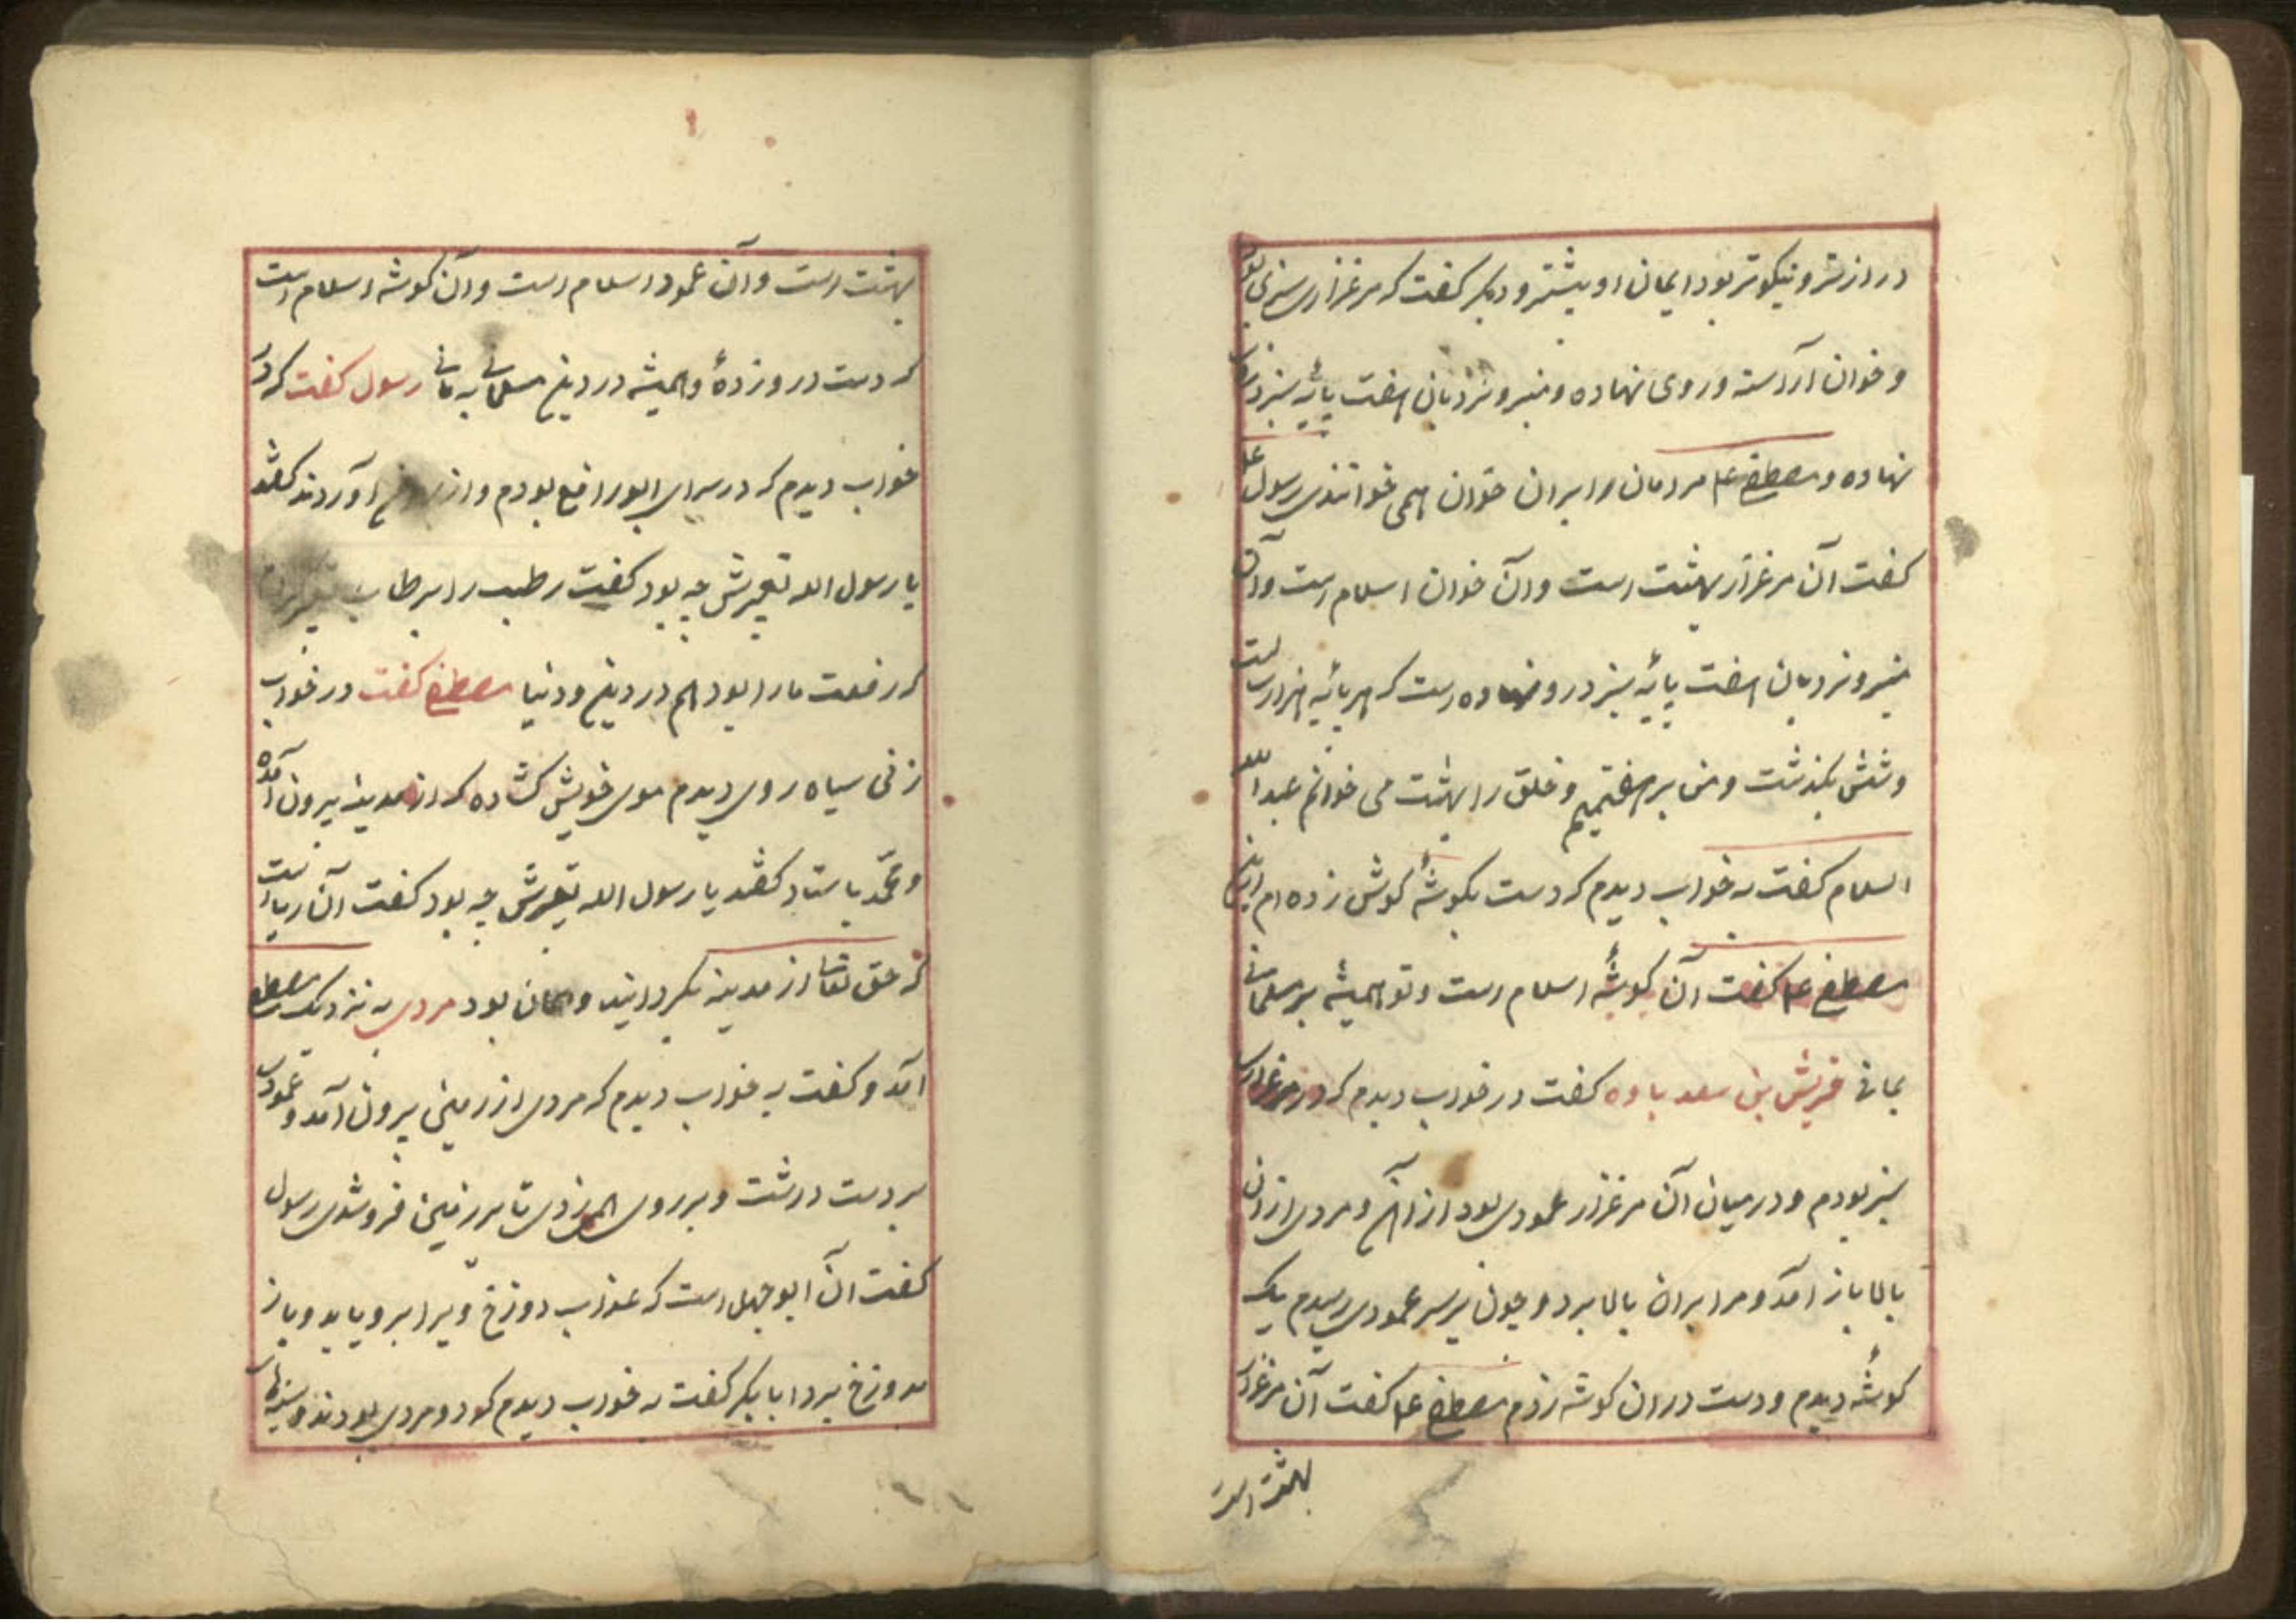 درازتر و نیکوتر بود ایمان او بیشتر و دیگر کفت که مرغزاری سبزی
و خوان آراسته و روی نهاده و منبر و نردبان هفت پائه سبز
نهاده و مصطفی علم مردمان را بران خوان همی خوانندی رسول علم
کفت آن مرغزار بهشت است و آن خوان اسلام است و آن
منبر و نردبان هفت پائه سبز درو نهاده است که هر پائه هزار سالست
و شش بکذشت و من بر هفتمیم و خلق را بهشت می خوانم عبد الله
السلام کفت به خواب دیدم که دست بکوشهٔ کوش زده ام
مصطفی علم کفت آن کوشهٔ اسلام است و تو همیشه بر مسلمانی
بمانی قریش بن سعد باده کفت در خواب دیدم که در مرغزاری
سبز بودم و در میان آن مرغزار عمودی بود از آهن و مردی از آن
بالا باز آمد و مرا بران بالا برد و چون بر سر عمودی رسیدم یک
کوشهٔ دیدم و دست در ان کوشه زدم مصطفی علم کفت آن مرغزار
بهشت است
بهشت است و آن عمود اسلام است و آن کوشه اسلام است
که دست در و زدهٔ و همیشه در دین مسلمانی به مانی رسول کفت که در
خواب دیدم که در سرای ابو رافع بودم و از آوردند کفتند
یا رسول الله تعبیرش چه بود کفت رطب را برطاب
که رفعت ما را بود هم در دین و دنیا مصطفی کفت در خواب
زنی سیاه روی دیدم موی خویش کشاده که از مدینه بیرون آمده
و محمد باستاد کفتند یا رسول الله تعبیرش چه بود کفت آن وباست
که حق تعا از مدینه بکردانید و همان بود مردی به نزدیک مصطفی
آمد و کفت به خواب دیدم که مردی از زمین بیرون آمد و عمود
بر دست درشت و بر روی همی زدی تا بر زمین فرو شدی رسول
کفت آن ابو جهل است که عذاب دوزخ ویرا برو باید و باز
بدوزخ برد ابابکر کفت به خواب دیدم که دو مردی بودند و